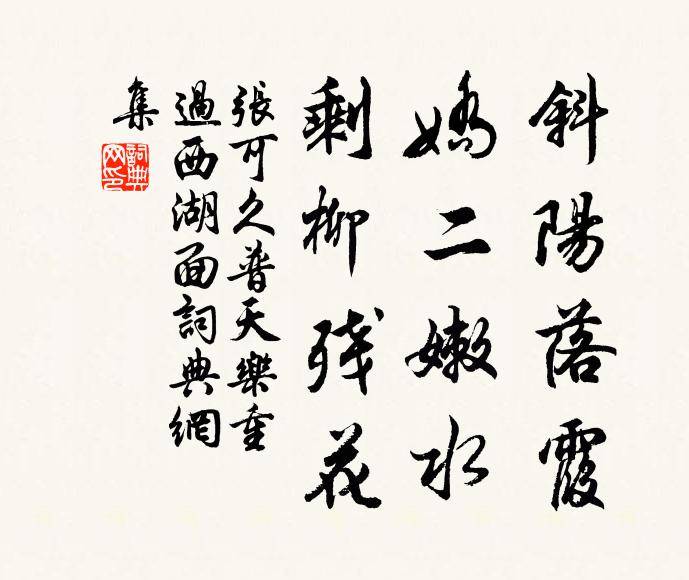 斜陽落霞
嬌二嫩水
剩柳残花
張可久普天樂重
過西湖面詞典網
集
詞典網印